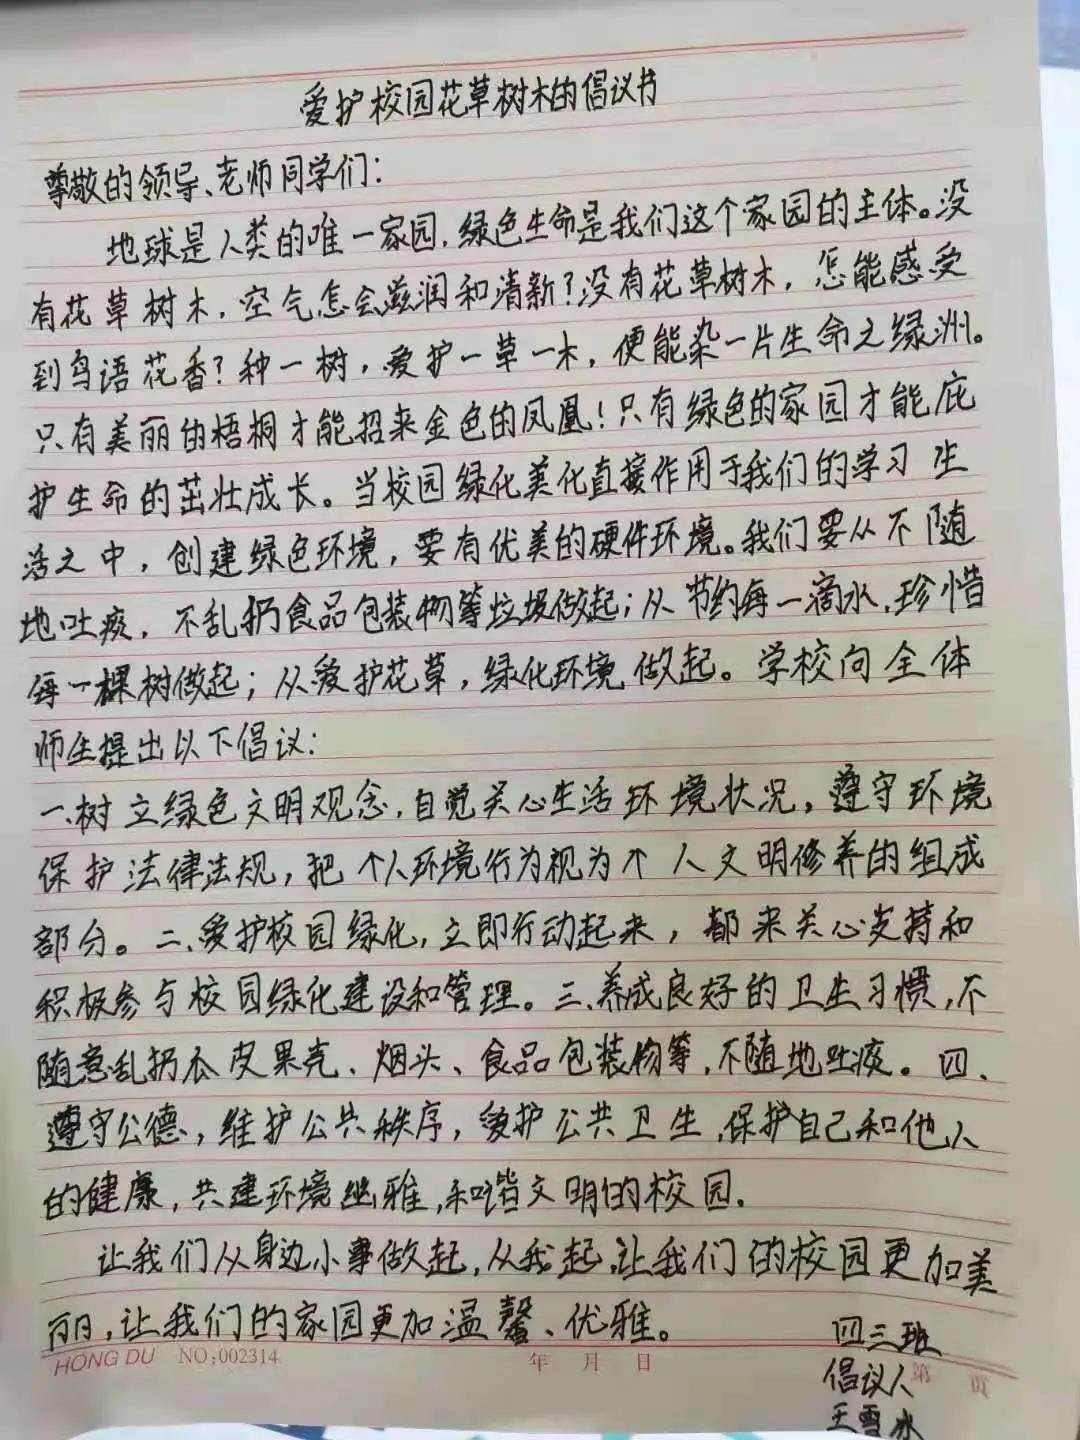 爱护校园花草树木的倡议书
尊敬的领导、老师同学们：
地球是人类的唯一家园，绿色生命是我们这个家园的主体。没
有花草树木，空气怎会滋润和清新？没有花草树木，怎能感受
到鸟语花香？种一树，爱护一草一木，便能染一片生命之绿洲。
只有美丽的梧桐才能招来金色的凤凰！只有绿色的家园才能庇
护生命的茁壮成长。当校园绿化美化直接作用于我们的学习生
活之中，创建绿色环境，要有优美的硬件环境。我们要从不随
地吐痰，不乱扔食品包装物等垃圾做起；从节约每一滴水，珍惜
每一棵树做起；从爱护花草，绿化环境做起。学校向全体
师生提出以下倡议：
一、树立绿色文明观念，自觉关心生活环境状况，遵守环境
保护法律法规，把个人环境行为视为个人文明修养的组成
部分。二、爱护校园绿化，立即行动起来，都来关心支持和
积极参与校园绿化建设和管理。三、养成良好的卫生习惯，不
随意乱扔瓜皮果壳、烟头、食品包装物等，不随地吐痰。四、
遵守公德，维护公共秩序，爱护公共卫生，保护自己和他人
的健康，共建环境幽雅，和谐文明的校园．
让我们从身边小事做起，从我起，让我们的校园更加美
丽，让我们的家园更加温馨、优雅。
四三班
HONG DU NO:002314 年 月 日 第 页
倡议人
王雪冰